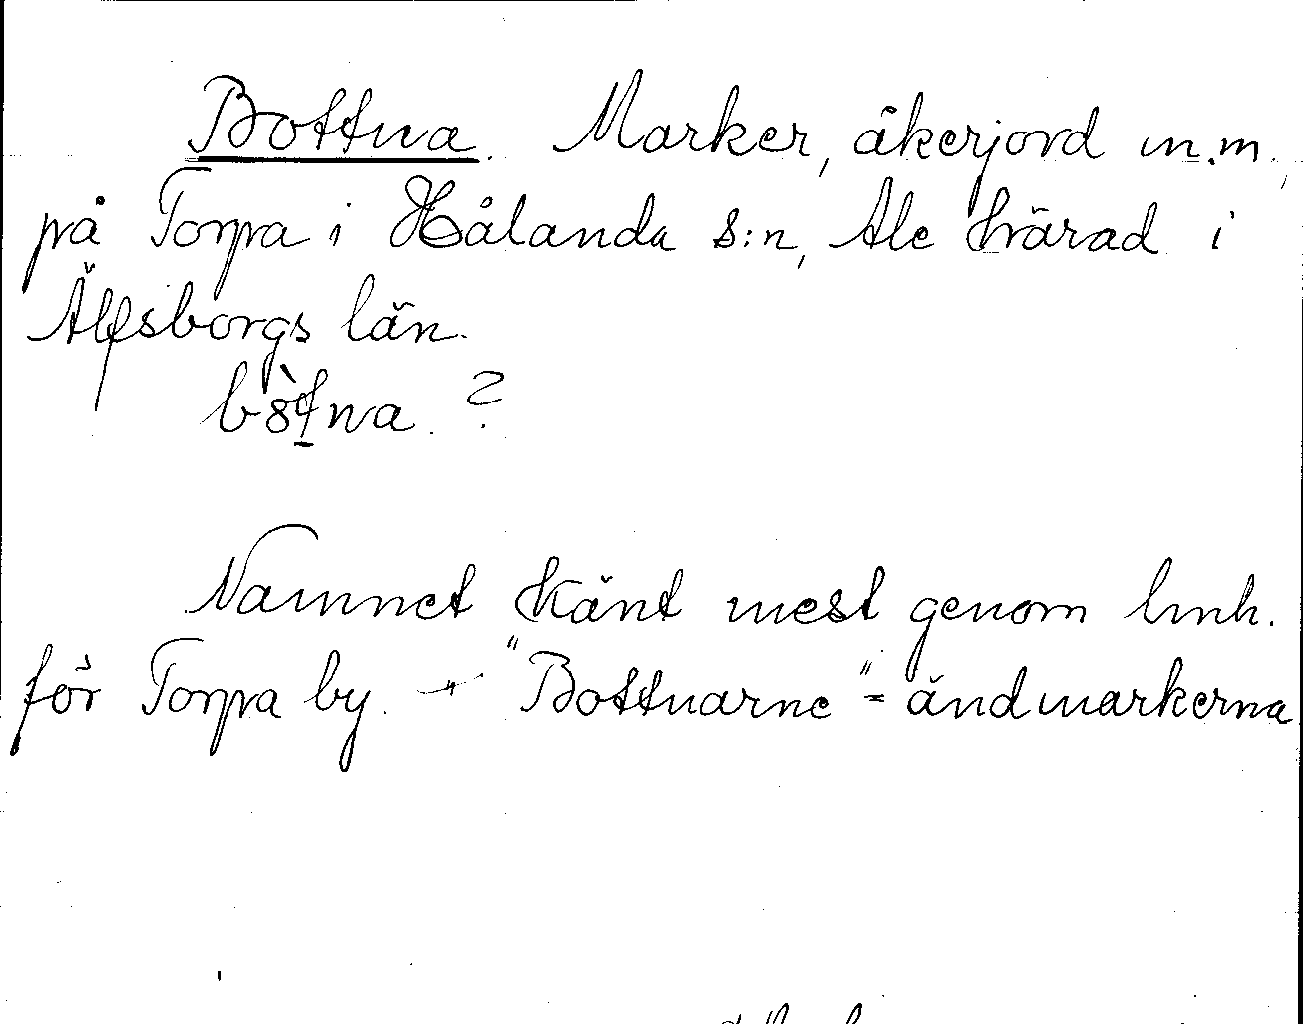 Bottna. Marker, åkerjord m.m.,
på Torpa i Hålanda s:n, Ale härad i
Älfsborgs län.
Namnet känt mest genom lmh.
för Torpa by. + "Bottnarne" = ändmarkerna